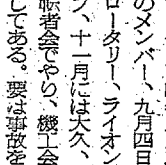 のメンバー、九月四日
ロータリー、ライオン
ソ、十一月には大久、
転者会でやり、機工会
してある。要は事故を